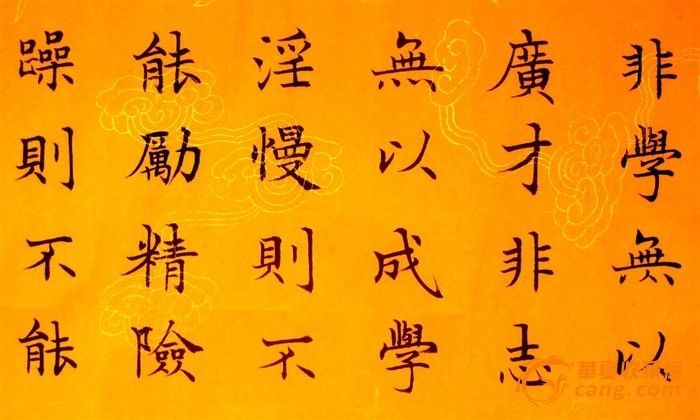 非學無以
廣才非志
無以成學
淫慢則不
能勵精險
躁則不能
華夏收藏網
cang.com